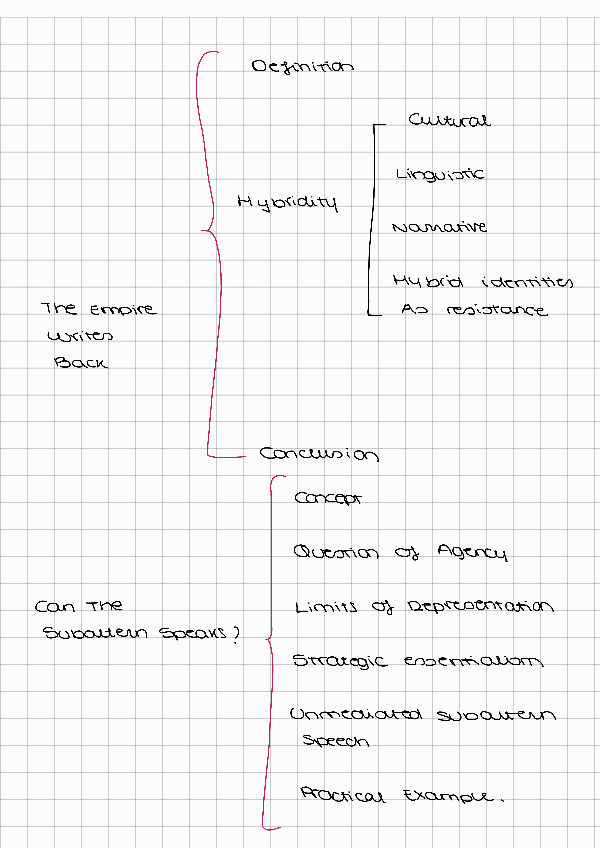 Definition
Cultural
Linguistic
Hybridity
Narrative
Hybrid identities
As resistance
The Empire
Writes
Back
Conclusion
Concept
Question of Agency
Can The
Subaltern Speaks?
Limits of Representation
Strategic essentialism
Unmediated subaltern
Speech
Practical Example.